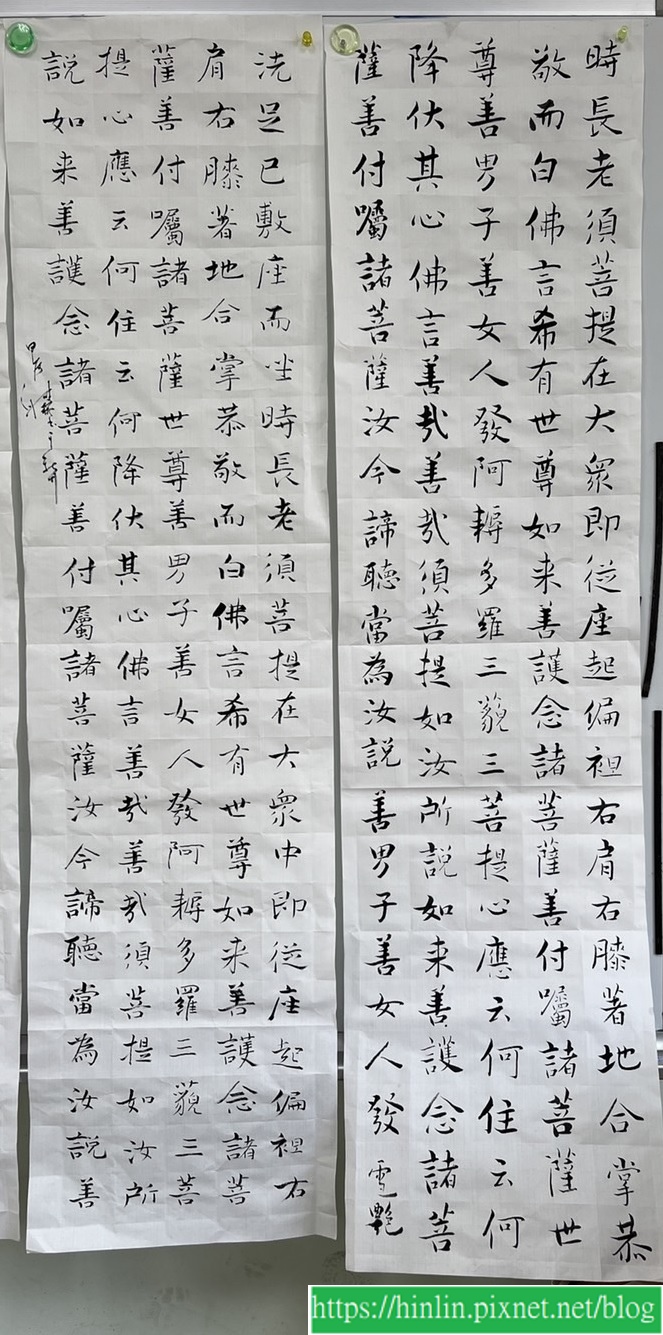 時長老須菩提在大眾即從座起偏袒右肩右膝著地合掌恭
敬而白佛言希有世尊如来善護念諸菩薩善付囑諸菩薩世
尊善男子善女人發阿耨多羅三藐三菩提心應云何住云何
降伏其心佛言善哉善哉須菩提如汝所説如来善護念諸菩
薩善付囑諸菩薩汝今諦聽當為汝説善男子善女人發雪艷
洗足已敷座而坐時長老須菩提在大眾中即從座起偏袒右
肩右膝著地合掌恭敬而白佛言希有世尊如来善護念諸菩
薩善付囑諸菩薩世尊善男子善女人發阿耨多羅三藐三菩
提心應云何住云何降伏其心佛言善哉善哉須菩提如汝所
説如来善護念諸菩薩善付囑諸菩薩汝今諦聽當為汝説善
甲辰
https://hinlin.pixnet.net/blog